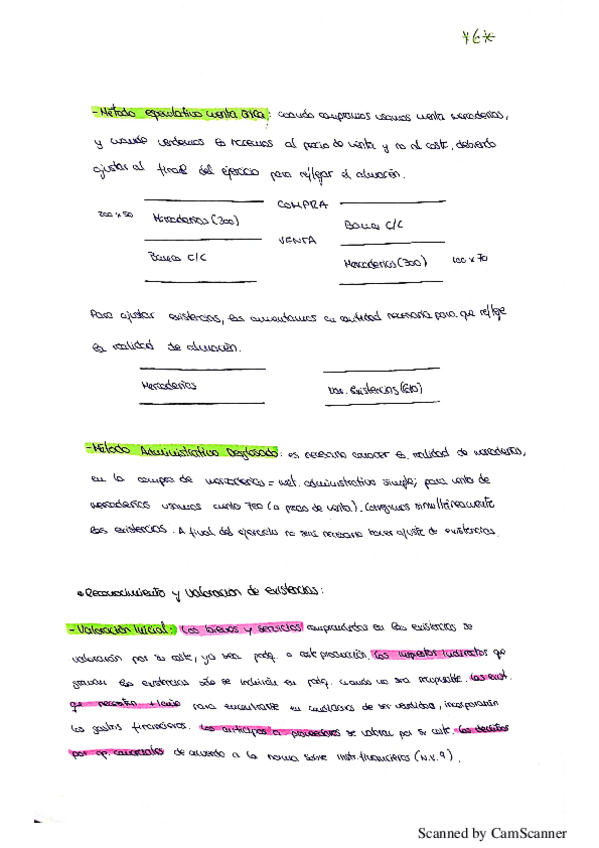 - Método especulativo cuenta única: cuando compramos usamos cuenta mercaderías,
y cuando vendemos la hacemos al precio de venta y no al coste, debiendo
ajustar al final del ejercicio para reflejar el almacén.
COMPRA
200 x 50 Mercaderías (300) Banco C/C
VENTA
Banco C/C Mercaderías (300) 100 x 70
Para ajustar existencias, las aumentamos en cantidad necesaria para que refleje
la realidad de almacén.
Mercaderías Var. Existencias (610)
- Método Administrativo Desglosado: es necesario conocer la realidad de mercaderías,
en la compra de mercaderías = met. administrativo simple; para venta de
mercaderías usamos cuenta 700 (a precio de venta). Corregimos simultáneamente
las existencias. A final del ejercicio no será necesario hacer ajuste de existencias.
• Reconocimiento y valoración de existencias:
- Valoración Inicial: Los bienes y servicios comprendidos en las existencias se
valorarán por su coste, ya sea padq. o coste producción. Los impuestos indirectos que
gravan las existencias sólo se incluirán en padq. cuando no sea recuperable. Las exist.
que necesiten +1año para encontrarse en condiciones de ser vendidas, incorporarán
los gastos financieros. Los anticipos a proveedores se valoran por su coste. Los débitos
por op. comerciales de acuerdo a la norma sobre instr. financieros (N.V.9).
Scanned by CamScanner